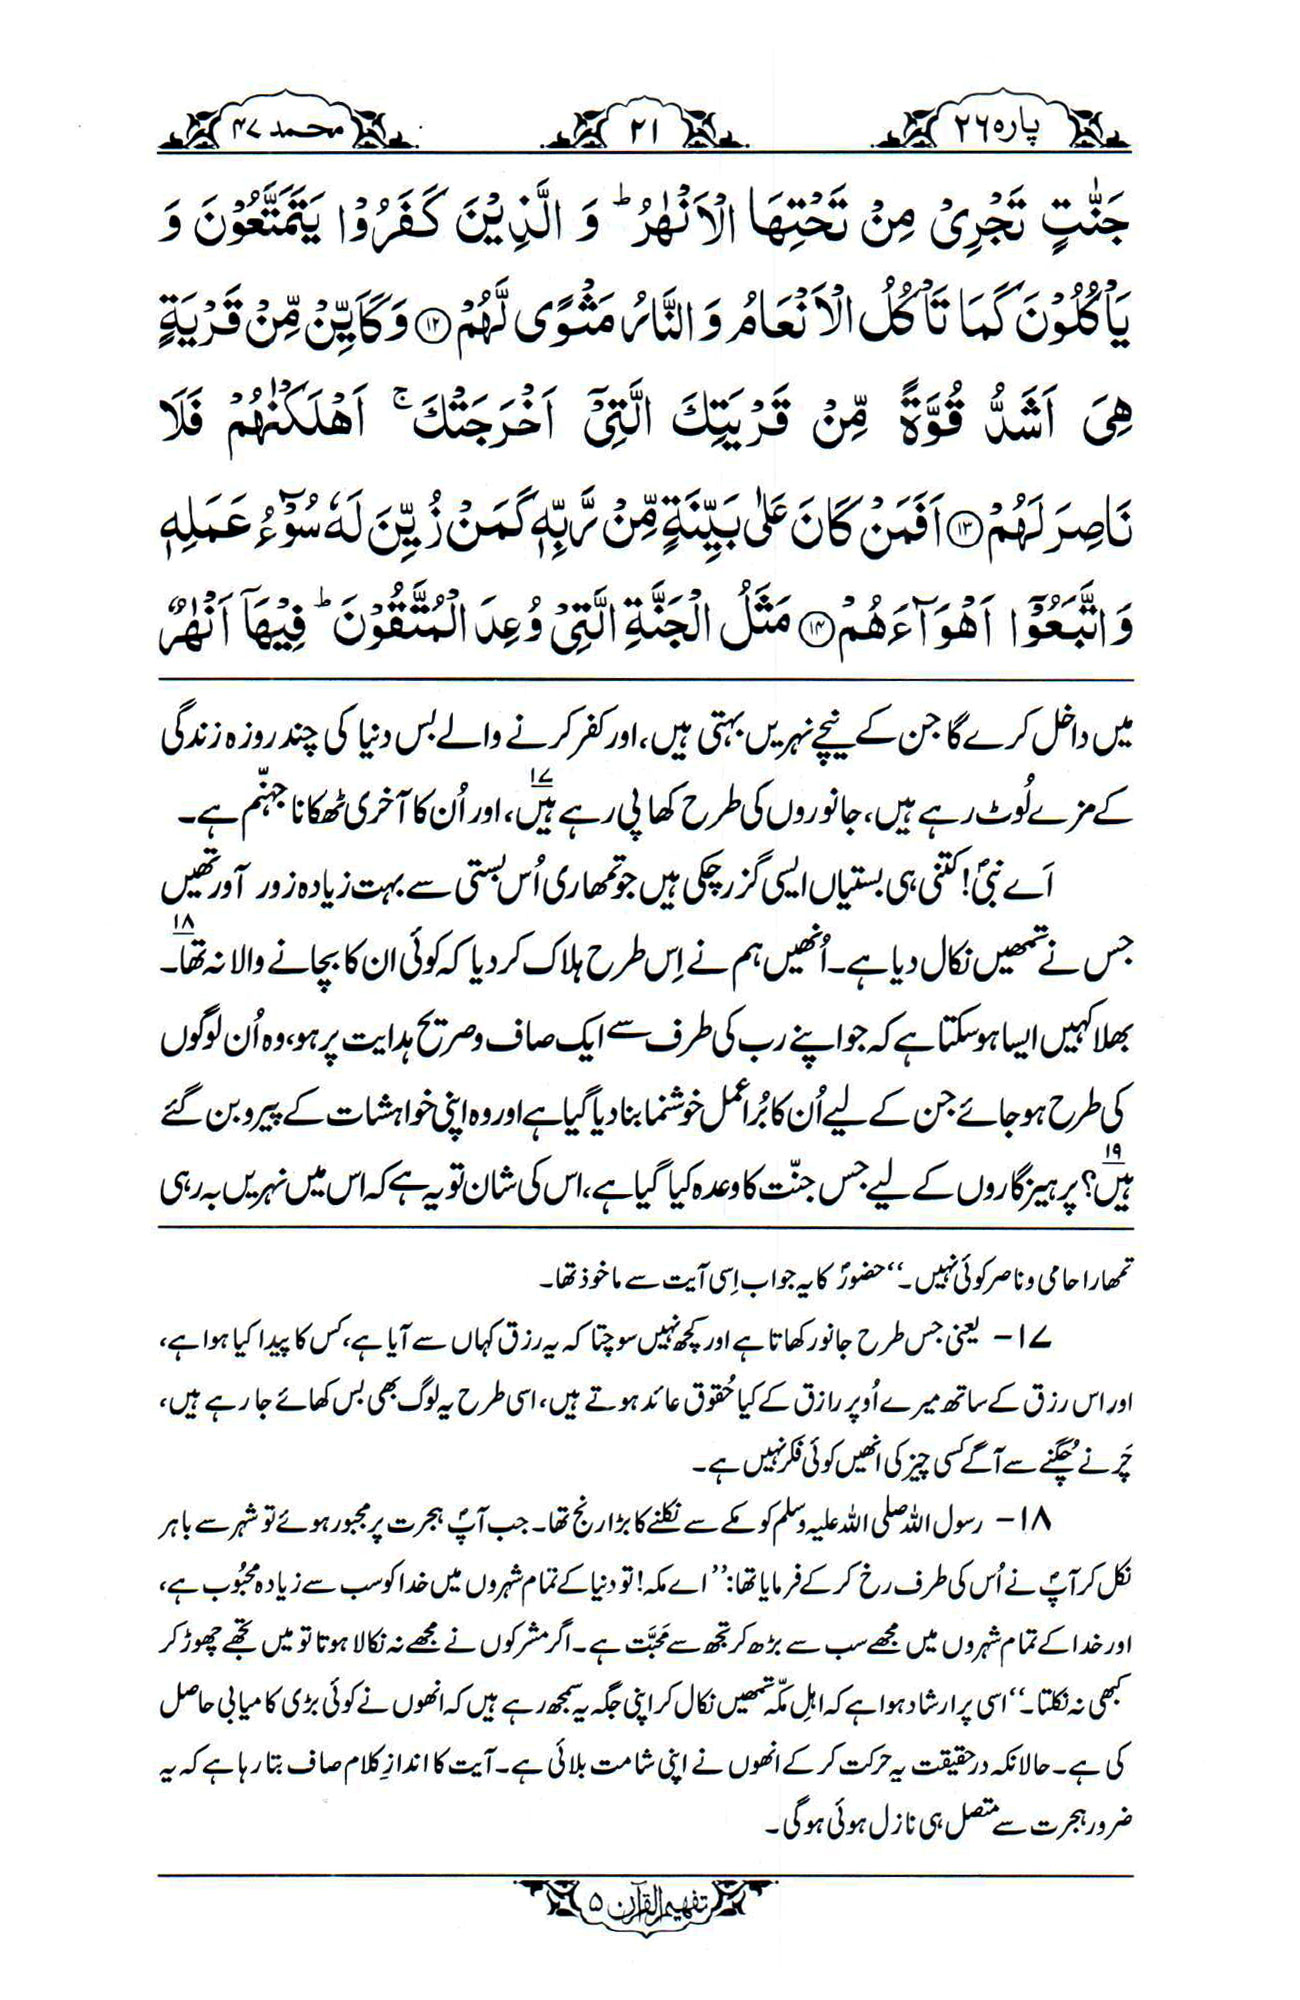 پارہ ۲۶
۲۱
محمد ۴۷
جَنّٰتٍ تَجْرِیْ مِنْ تَحْتِهَا الْاَنْهٰرُ ؕ وَ الَّذِیْنَ كَفَرُوْا یَتَمَتَّعُوْنَ وَ
یَاْكُلُوْنَ كَمَا تَاْكُلُ الْاَنْعَامُ وَ النَّارُ مَثْوًی لَّهُمْ ⑫ وَ كَاَیِّنْ مِّنْ قَرْیَةٍ
هِیَ اَشَدُّ قُوَّةً مِّنْ قَرْیَتِكَ الَّتِیْۤ اَخْرَجَتْكَ ۚ اَهْلَكْنٰهُمْ فَلَا
نَاصِرَ لَهُمْ ⑬ اَفَمَنْ كَانَ عَلٰی بَیِّنَةٍ مِّنْ رَّبِّهٖ كَمَنْ زُیِّنَ لَهٗ سُوْٓءُ عَمَلِهٖ
وَ اتَّبَعُوْۤا اَهْوَآءَهُمْ ⑭ مَثَلُ الْجَنَّةِ الَّتِیْ وُعِدَ الْمُتَّقُوْنَ ؕ فِیْهَاۤ اَنْهٰرٌ
میں داخل کرے گا جن کے نیچے نہریں بہتی ہیں، اور کفر کرنے والے بس دنیا کی چند روزہ زندگی
کے مزے لُوٹ رہے ہیں، جانوروں کی طرح کھا پی رہے ہیں۱۷، اور اُن کا آخری ٹھکانا جہنّم ہے۔
اَے نبیؐ! کتنی ہی بستیاں ایسی گزر چکی ہیں جو تمھاری اُس بستی سے بہت زیادہ زور آور تھیں
جس نے تمھیں نکال دیا ہے۔ اُنھیں ہم نے اِس طرح ہلاک کر دیا کہ کوئی ان کا بچانے والا نہ تھا۱۸۔
بھلا کہیں ایسا ہو سکتا ہے کہ جو اپنے رب کی طرف سے ایک صاف و صریح ہدایت پر ہو، وہ اُن لوگوں
کی طرح ہو جائے جن کے لیے اُن کا بُرا عمل خوشنما بنا دیا گیا ہے اور وہ اپنی خواہشات کے پیرو بن گئے
ہیں۱۹؟ پرہیزگاروں کے لیے جس جنّت کا وعدہ کیا گیا ہے، اس کی شان تو یہ ہے کہ اس میں نہریں بہ رہی
تمھارا حامی و ناصر کوئی نہیں۔‘‘ حضورؐ کا یہ جواب اِسی آیت سے ماخوذ تھا۔
۱۷- یعنی جس طرح جانور کھاتا ہے اور کچھ نہیں سوچتا کہ یہ رزق کہاں سے آیا ہے، کس کا پیدا کیا ہوا ہے،
اور اس رزق کے ساتھ میرے اُوپر رازق کے کیا حُقوق عائد ہوتے ہیں، اسی طرح یہ لوگ بھی بس کھائے جا رہے ہیں،
چَرنے چُگنے سے آگے کسی چیز کی انھیں کوئی فکر نہیں ہے۔
۱۸- رسول اللہ صلی اللہ علیہ وسلم کو مکے سے نکلنے کا بڑا رنج تھا۔ جب آپؐ ہجرت پر مجبور ہوئے تو شہر سے باہر
نکل کر آپؐ نے اُس کی طرف رخ کر کے فرمایا تھا: ’’اے مکہ! تو دنیا کے تمام شہروں میں خدا کو سب سے زیادہ محبُوب ہے،
اور خدا کے تمام شہروں میں مجھے سب سے بڑھ کر تجھ سے مَحبَّت ہے۔ اگر مشرکوں نے مجھے نہ نکالا ہوتا تو میں تجھے چھوڑ کر
کبھی نہ نکلتا۔‘‘ اسی پر ارشاد ہوا ہے کہ اہلِ مکّہ تمھیں نکال کر اپنی جگہ یہ سمجھ رہے ہیں کہ انھوں نے کوئی بڑی کامیابی حاصل
کی ہے۔ حالانکہ درحقیقت یہ حرکت کر کے انھوں نے اپنی شامت بلائی ہے۔ آیت کا اندازِ کلام صاف بتا رہا ہے کہ یہ
ضرور ہجرت سے متصل ہی نازل ہوئی ہوگی۔
تفہیم القرآن ۵